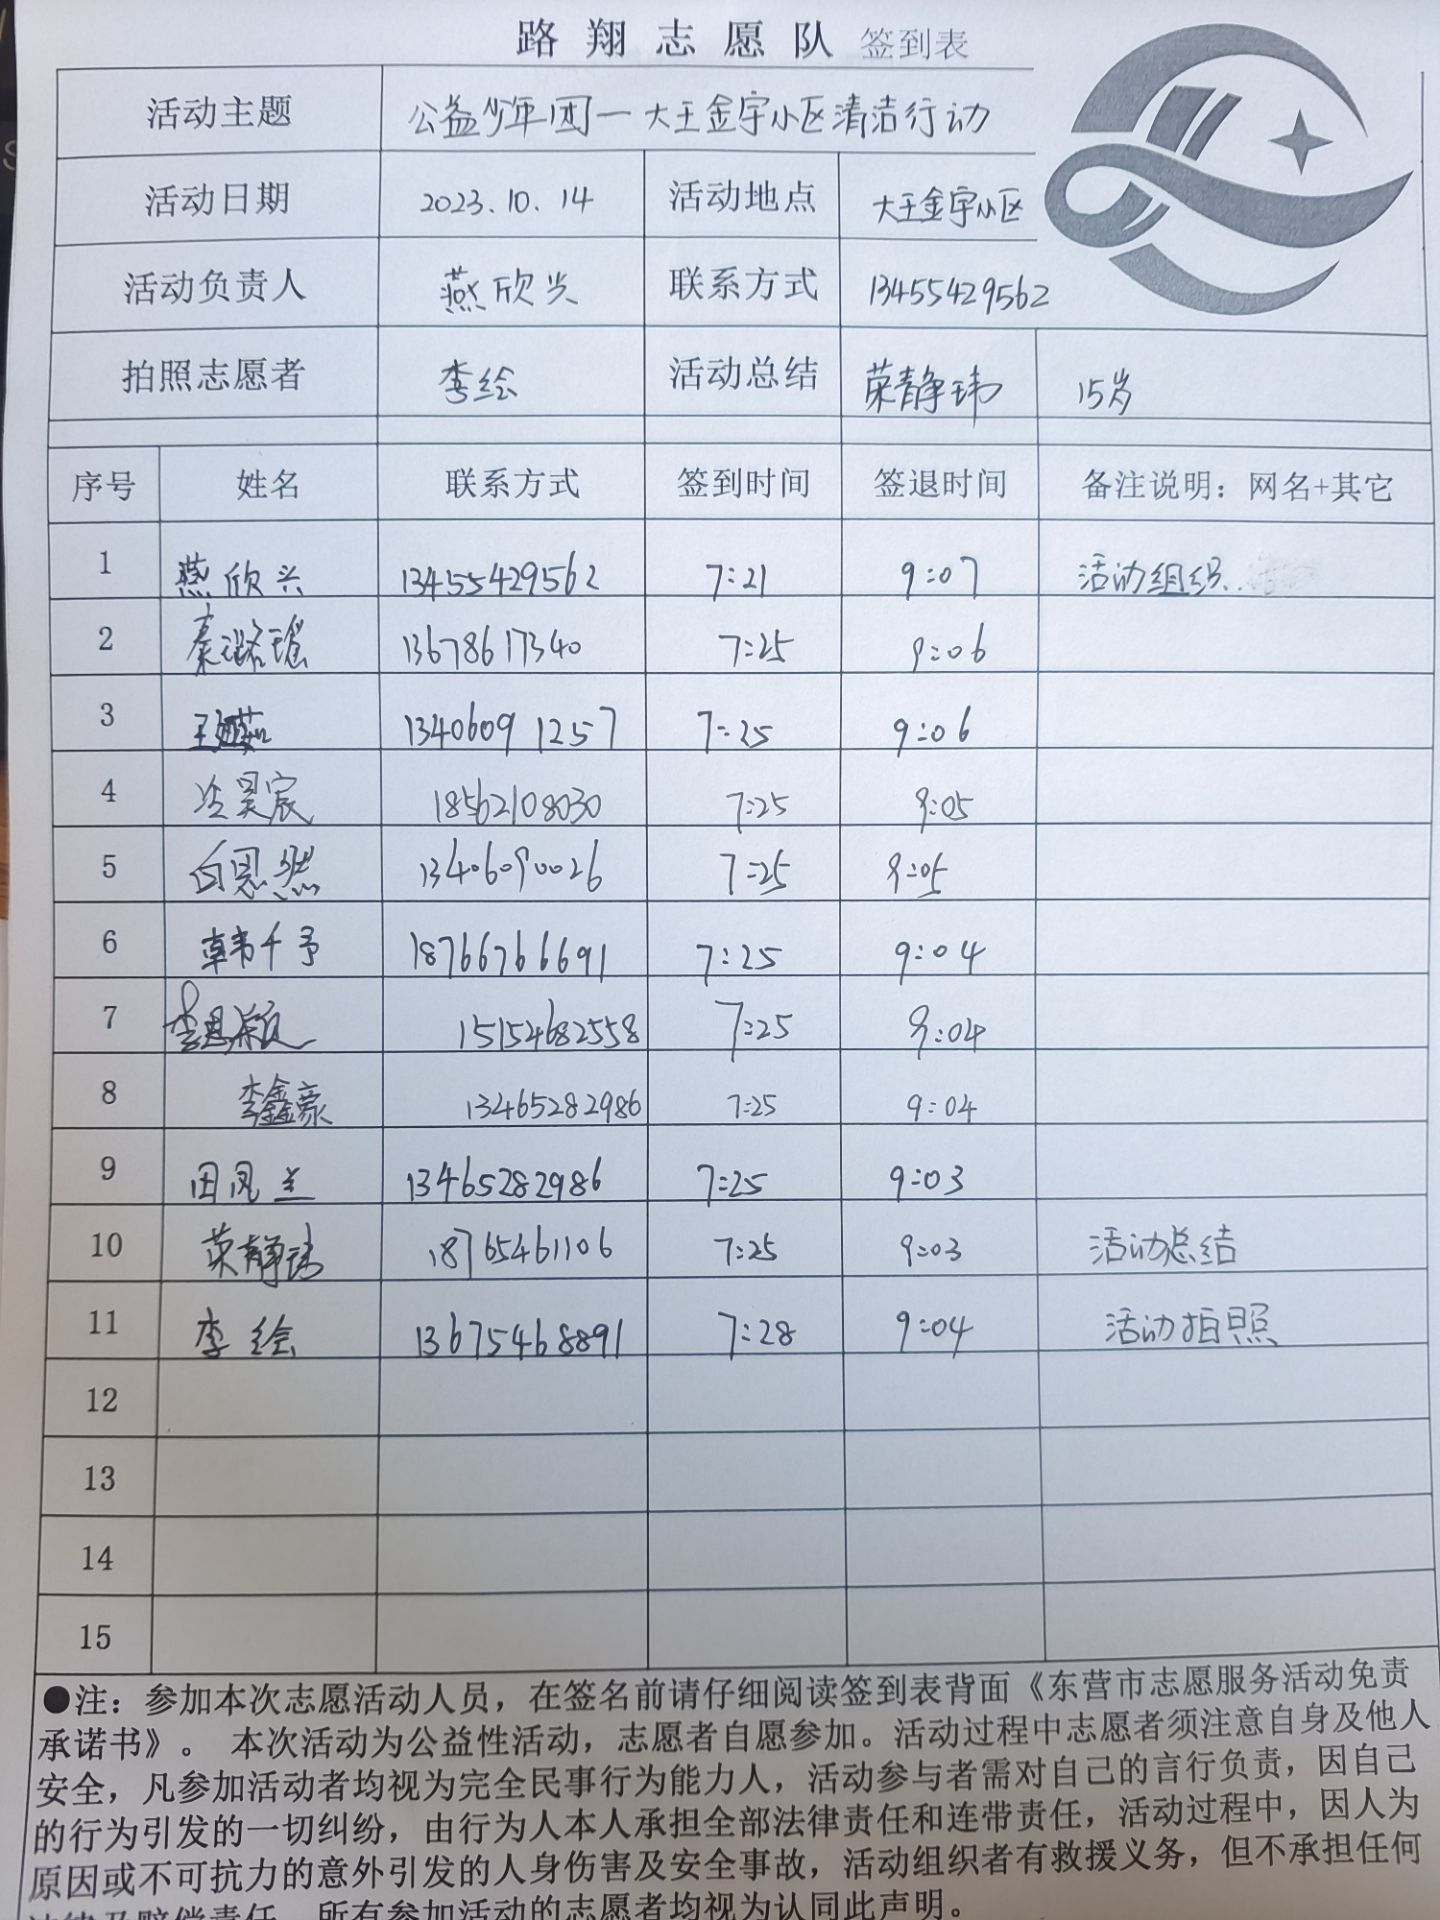 路翔志愿队 签到表
活动主题 公益少年团一大王金宇小区清洁行动
活动日期 2023.10.14 活动地点 大王金宇小区
活动负责人 燕欣兴 联系方式 13455429562
拍照志愿者 李绘 活动总结 荣静玮 15岁
序号 姓名 联系方式 签到时间 签退时间 备注说明：网名+其它
1 燕欣兴 13455429562 7:21 9:07 活动组织
2 秦璐瑶 13678617340 7:25 9:06
3 13406091257 7:25 9:06
4 冷昊宸 18562108030 7:25 9:05
5 白恩然 13406090026 7:25 9:05
6 韩千予 18766766691 7:25 9:04
7 李思颖 15154682558 7:25 9:04
8 李鑫豪 13465282986 7:25 9:04
9 田凤兰 13465282986 7:25 9:03
10 荣静玮 18765461106 7:25 9:03 活动总结
11 李绘 13675468891 7:28 9:04 活动拍照
12
13
14
15
●注：参加本次志愿活动人员，在签名前请仔细阅读签到表背面《东营市志愿服务活动免责
承诺书》。 本次活动为公益性活动，志愿者自愿参加。活动过程中志愿者须注意自身及他人
安全，凡参加活动者均视为完全民事行为能力人，活动参与者需对自己的言行负责，因自己
的行为引发的一切纠纷，由行为人本人承担全部法律责任和连带责任，活动过程中，因人为
原因或不可抗力的意外引发的人身伤害及安全事故，活动组织者有救援义务，但不承担任何
法律及赔偿责任。所有参加活动的志愿者均视为认同此声明。